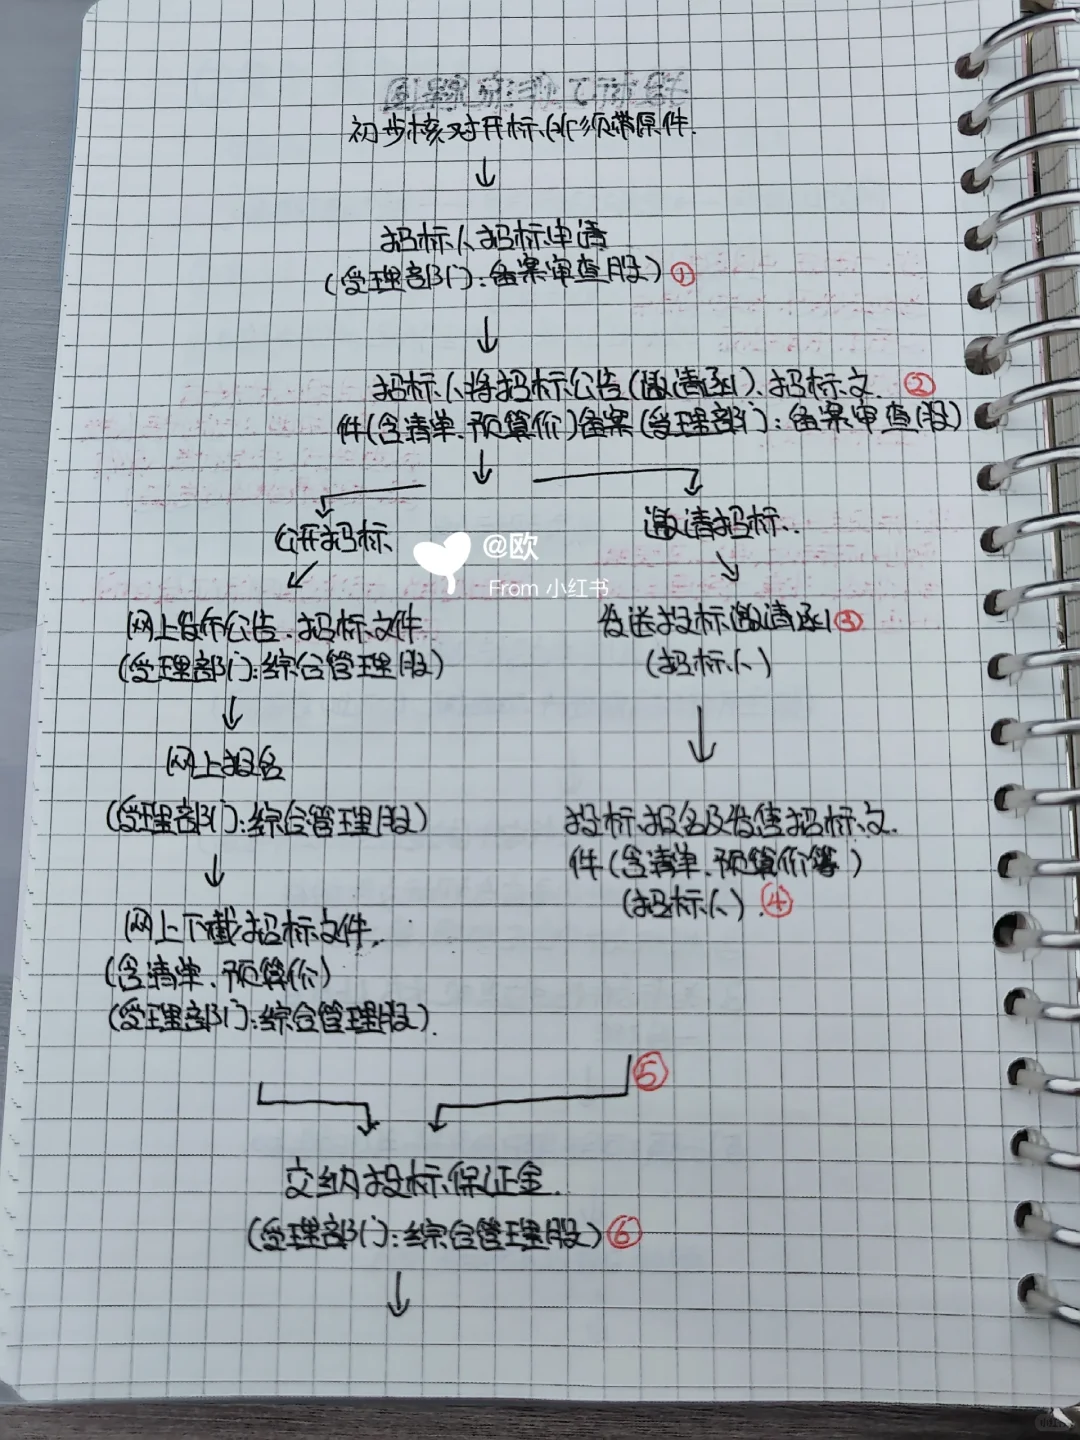 初步核对开标所须带原件.
招标人招标申请
(受理部门:备案审查股) ①
招标人将招标公告(邀请函)、招标文 ②
件(含清单、预算价)备案(受理部门:备案审查股)
公开招标
邀请招标.
@欧
From 小红书
网上发布公告、招标文件
(受理部门:综合管理股)
发送投标邀请函 ③
(招标人)
网上报名
(受理部门:综合管理股)
投标报名及发售招标文
件(含清单、预算价等)
(招标人). ④
网上下载招标文件.
(含清单、预算价)
(受理部门:综合管理股).
⑤
交纳投标保证金.
(受理部门:综合管理股) ⑥